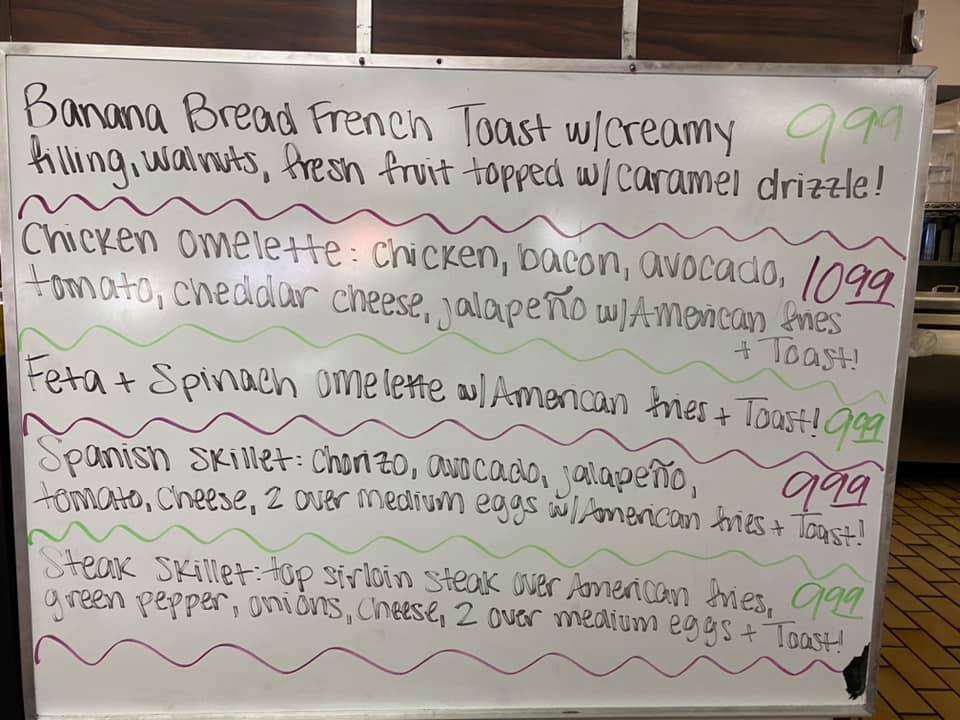 Banana Bread French Toast w/creamy 999
filling, walnuts, fresh fruit topped w/caramel drizzle!
Chicken omelette: chicken, bacon, avocado, 1099
tomato, cheddar cheese, jalapeño w/American fries
+ Toast!
Feta + Spinach omelette w/American fries + Toast! 999
Spanish skillet: Chorizo, avocado, jalapeño, 999
tomato, cheese, 2 over medium eggs w/American fries + Toast!
Steak skillet: top sirloin steak over American fries, 999
green pepper, onions, cheese, 2 over medium eggs + Toast!